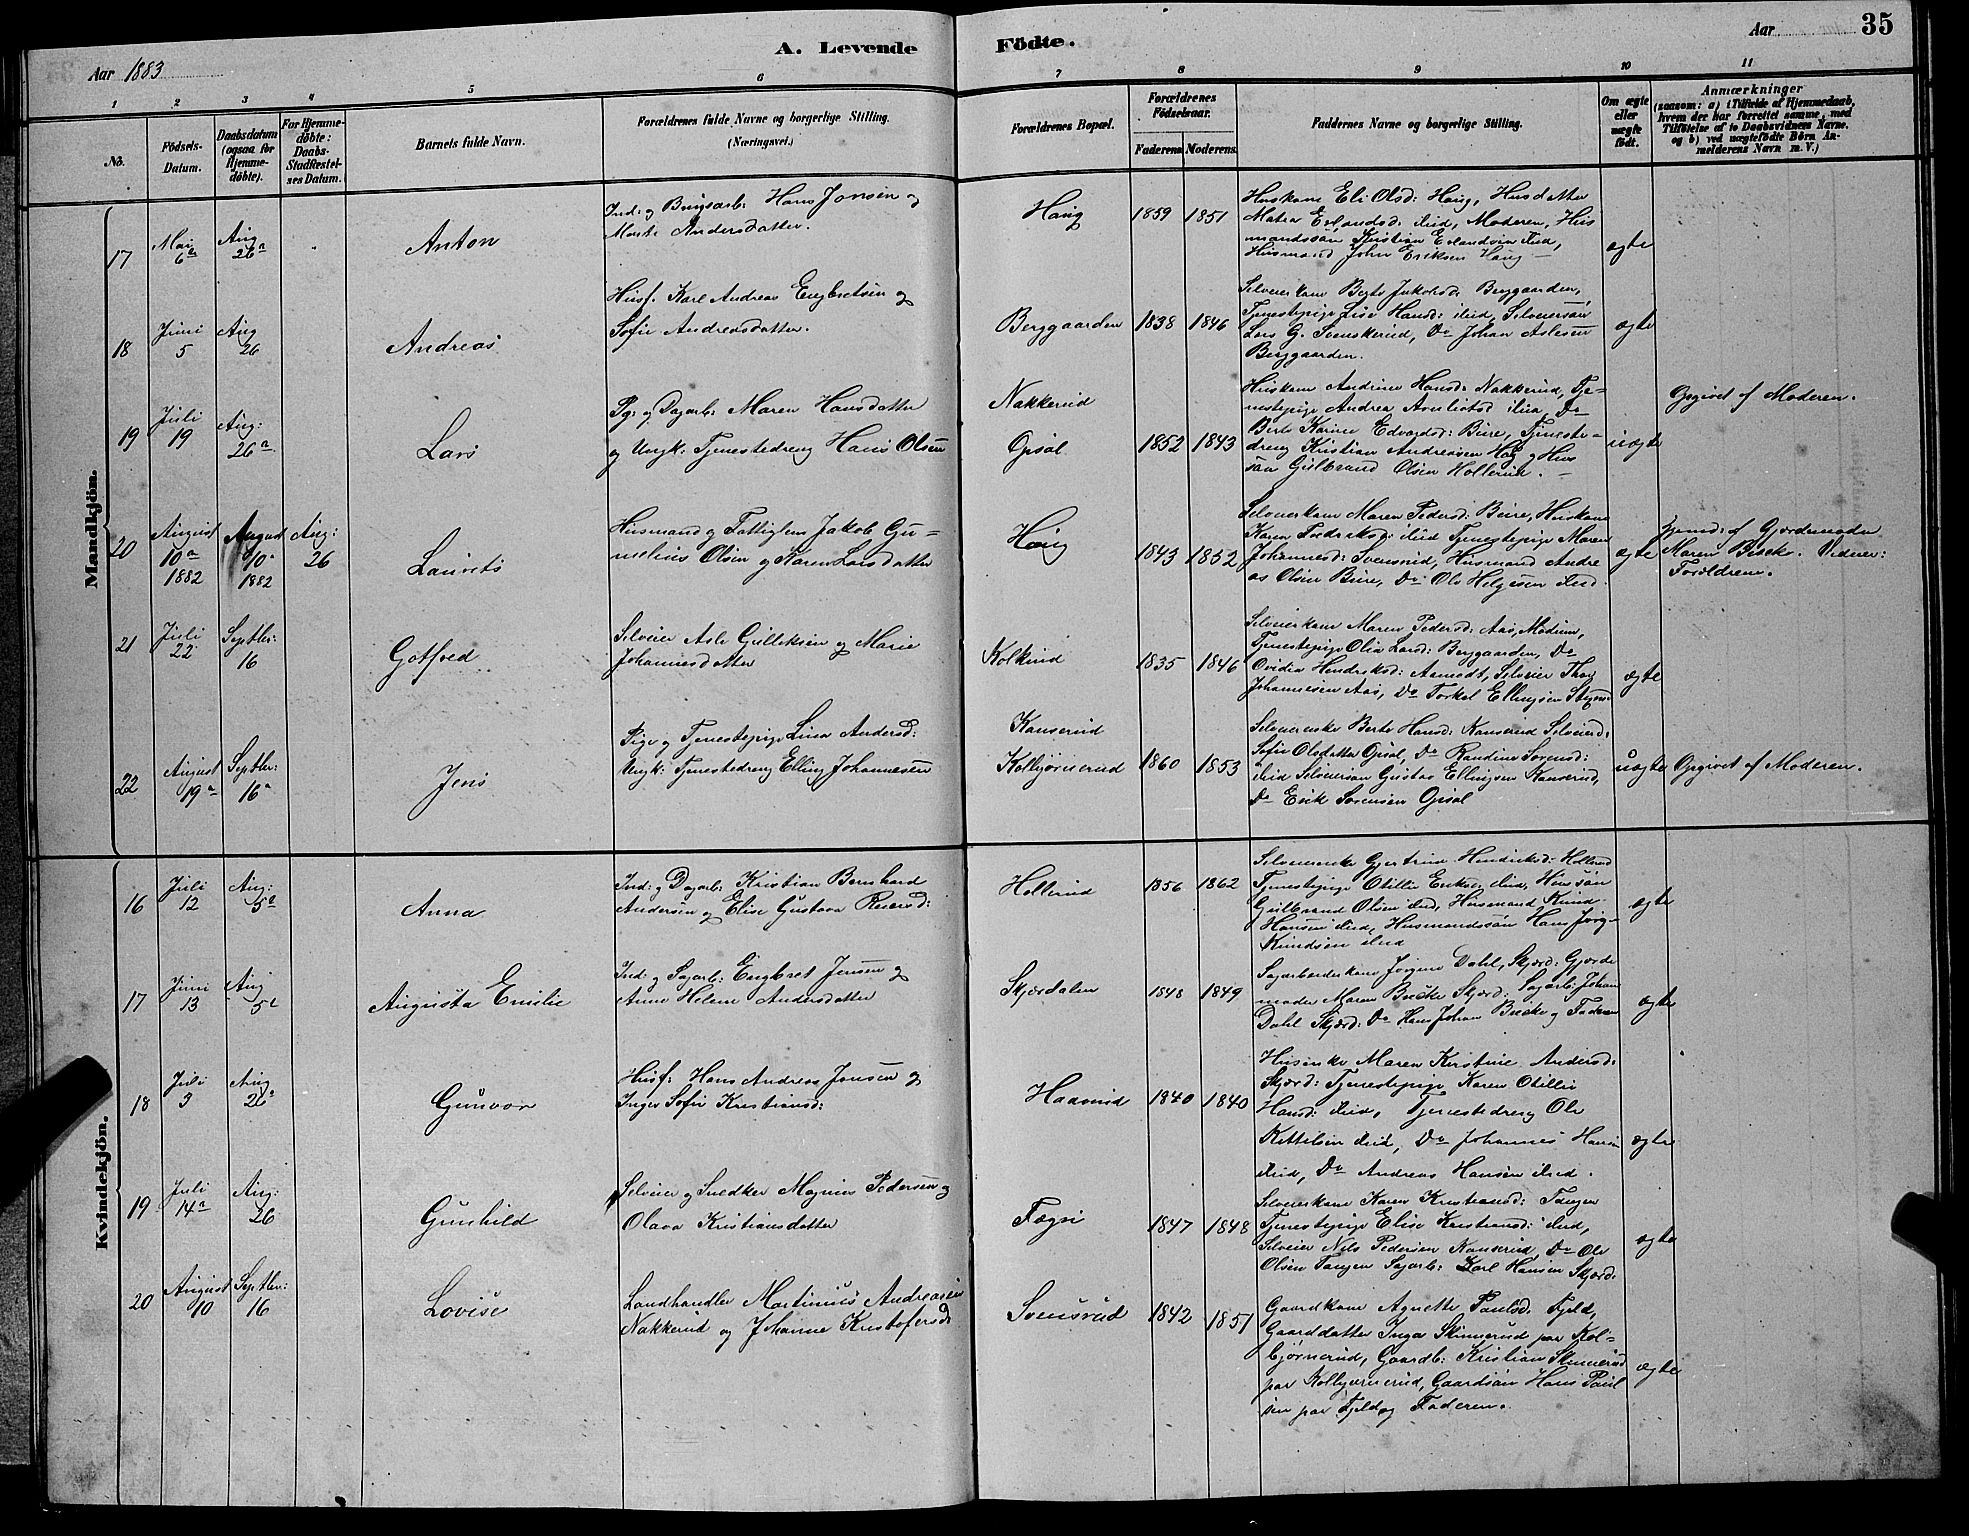 Aar 1883
A. Levende
Födte.
Aar
35
1 2 3 4 5 6 7 8 9 10 11
No.
Födsels-
Datum.
Daabsdatum
(ogsaa for
Hjemme-
döbte).
For Hjemme-
döbte:
Daabs-
Stadfæstel-
ses Datum.
Barnets fulde Navn.
Forældrenes fulde Navne og borgerlige Stilling.
(Næringsvei.)
Forældrenes Bopæl.
Forældrenes
Födselsaar.
Faderens. Moderens.
Faddernes Navne og borgerlige Stilling.
Om ægte
eller
uægte
födt.
Anmærkninger
(saasom: a) i Tilfælde af Hjemmedaab,
hvem der har forrettet samme, med
Tilföielse af to Daabsvidners Navne.
og b) ved uægtefödte Börn An-
melderens Navn m. V.)
Mandkjön.
17
Mai
6
Aug
26
Anton
Ind: og Bergsarb: Hans Jonsen og
Marte Andersdatter.
Haug
1859 1851
Huskone Eli Olsd: Haug, Husdatter
Matea Erlandsd: ibid, Moderen, Hus
mandssön Kristian Erlandsen ibid,
Husmand John Eriksen Haug
ægte
18
Juni
5
Aug
26
Andreas
Husf. Karl Andreas Engbretsen og
Sofie Andreasdatter.
Berggaarden
1838 1846
Selveierkone Berte Jakobsd: Berggaarden,
Tjenestepige Lise Hansd: ibid, Selveiersön
Lars G. Svenskerud, Do Johan Aslesen
Berggaarden.
ægte
19
Juli
19
Aug:
26
Lars
Pg: og Dagarb: Maren Hansdatter
og Ungk: Tjenestedreng Hans Olsen
Nakkerud
Opsal
1852 1843
Huskone Andrine Hansd: Nakkerud, Tje-
nestepige Andrea ibid, Do
Berte Karine Edvardsd: Bure, Tjeneste-
dreng Kristian Andreasen og Hus
sön Gulbrand Olsen Hollerud.
uægte
Opgivet af Moderen.
20
August
10
1882
August
10
1882
Aug:
26
Laurits
Husmand og Fattiglem Jakob Gu-
nelius Olsen og Karen Larsdatter
Haug
1843 1852
Selveierkone Maren Pedersd: Beire, Huskone
Karen ibid Tjenestepige Maren
Johannesd: Svensrud, Husmand Andre
as Olsen Beire, Do Ole Helgesen ibid
ægte
Hjemd: af Gjordemoder
Maren Bècke. Vidner:
Forældrene.
21
Juli
22
Septbr:
16
Gotfred
Selveier Asle Gulleksen og Marie
Johannesdatter
Kolkind
1835 1846
Selveierkone Maren Pedersd: Aas, Modum,
Tjenestepige Olia Larsd: Berggaarden, Do
Ovidia Hendriksd: Aamodt, Selveier Thor
Johannesen Aas, Do Torkel Ellingsen
ægte
22
August
19
Septbr:
16
Jens
Pige og Tjenestepige Lina Andersd:
Ungk: Tjenestedreng Elling Johannesen
Kanserud
Kolbjørnrud
1860 1853
Selveierenke Berte Hansd: Kanserud Selveierd:
Sofie Olsdatter Opsal, Do Randine Sorensd:
ibid Selveiersön Gustav Ellingsen Kanserud,
Do Erik Sorensen Opsal
uægte
Opgivet af Moderen.
Kvindekjön.
16
Juli
12
Aug:
5
Anna
Ind: og Dagarb: Kristian Bernhard
Andersen og Elise Gustava Reiersd:
Hollerud
1856 1862
Selveierenke Gjertrud Hendriksd: Hollerud
Tjenestepige Otillie Eriksd: ibid, Hussön
Gulbrand Olsen ibid, Husmand Knud
Hansen ibid, Husmandssön Hans Jörg-
Knudsen ibid
ægte
17
Juni
13
Aug
5
Augusta Emilie
Ind: og Sagarb: Engbret Jensen og
Anne Helene Andersdatter
Skjærdalen
1848 1849
Sagarbeiderkone Jörgine Dahl, Skjærd: Gjorde
moder Maren Becke Skjærd: Sagarb: Johan
Dahl Skjærd: Do Hans Johan Becke og Faderen
ægte
18
Juli
3
Aug
26
Gunvor
Husf: Hans Andreas Jonsen og
Inger Sofie Kristiansd:
Haavrud
1840 1840
Husenke Maren Kristine Andersd:
Skjærd: Tjenestepige Karen Otillie
Hansd: ibid, Tjenestedreng Ole
Kittilsen ibid, Do Johannes Hansen
ibid, Do Andreas Hansen ibid.
ægte
19
Juli
14
Aug:
26
Gunhild
Selveier og Snedker Magnus Pedersen og
Olava Kristiansdatter
Fægri
1847 1848
Selveierkone Karen Kristiansd: Tangen
Tjenestepige Elise Kristiansd: ibid,
Selveier Nils Pedersen Kanserud, Do Ole
Olsen Tangen Sagarb: Karl Hansen Skjærd:
ægte
20
August
10
Septbr:
16
Lovise
Landhandler Martinius Andreasen
Nakkerud og Johanne Kristofersd:
Svensrud
1842 1851
Gaardkone Agnethe Paulsd: Fjeld,
Gaarddatter Inga Skinnerud paa Kol-
bjørnerud, Gaardb: Kristian Skinnerud
paa Kolbjørnerud, Gaardsön Hans Paul
sen paa Fjeld og Faderen.
ægte